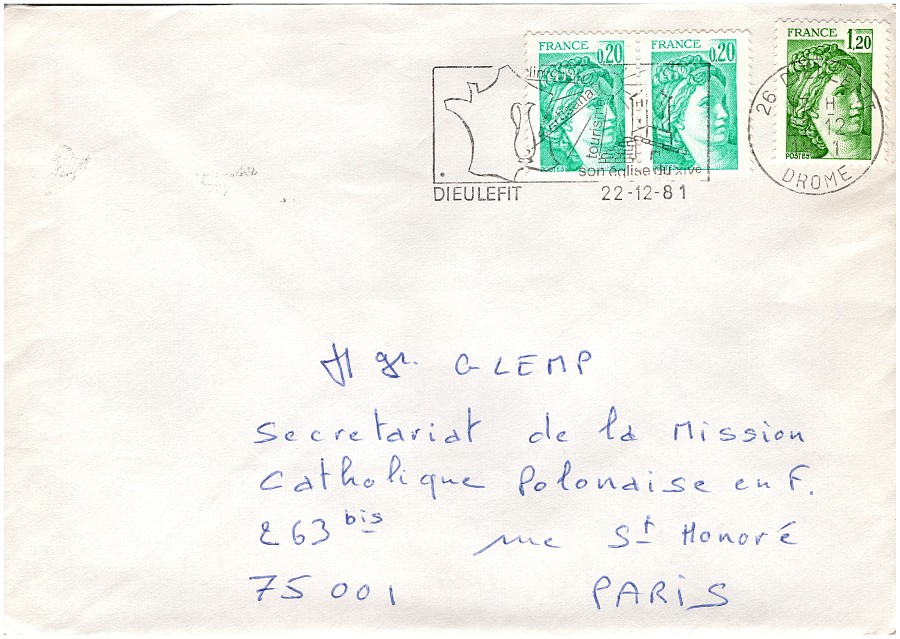 FRANCE 0,20
FRANCE 0,20
FRANCE 1,20
POSTES
artisanat
tourisme
son église du XIVe
DIEULEFIT 22-12-81
26
H
12
1
DROME
Mgr. GLEMP
Secretariat de la Mission
Catholique Polonaise en F.
263 bis rue St Honoré
75 001 PARIS